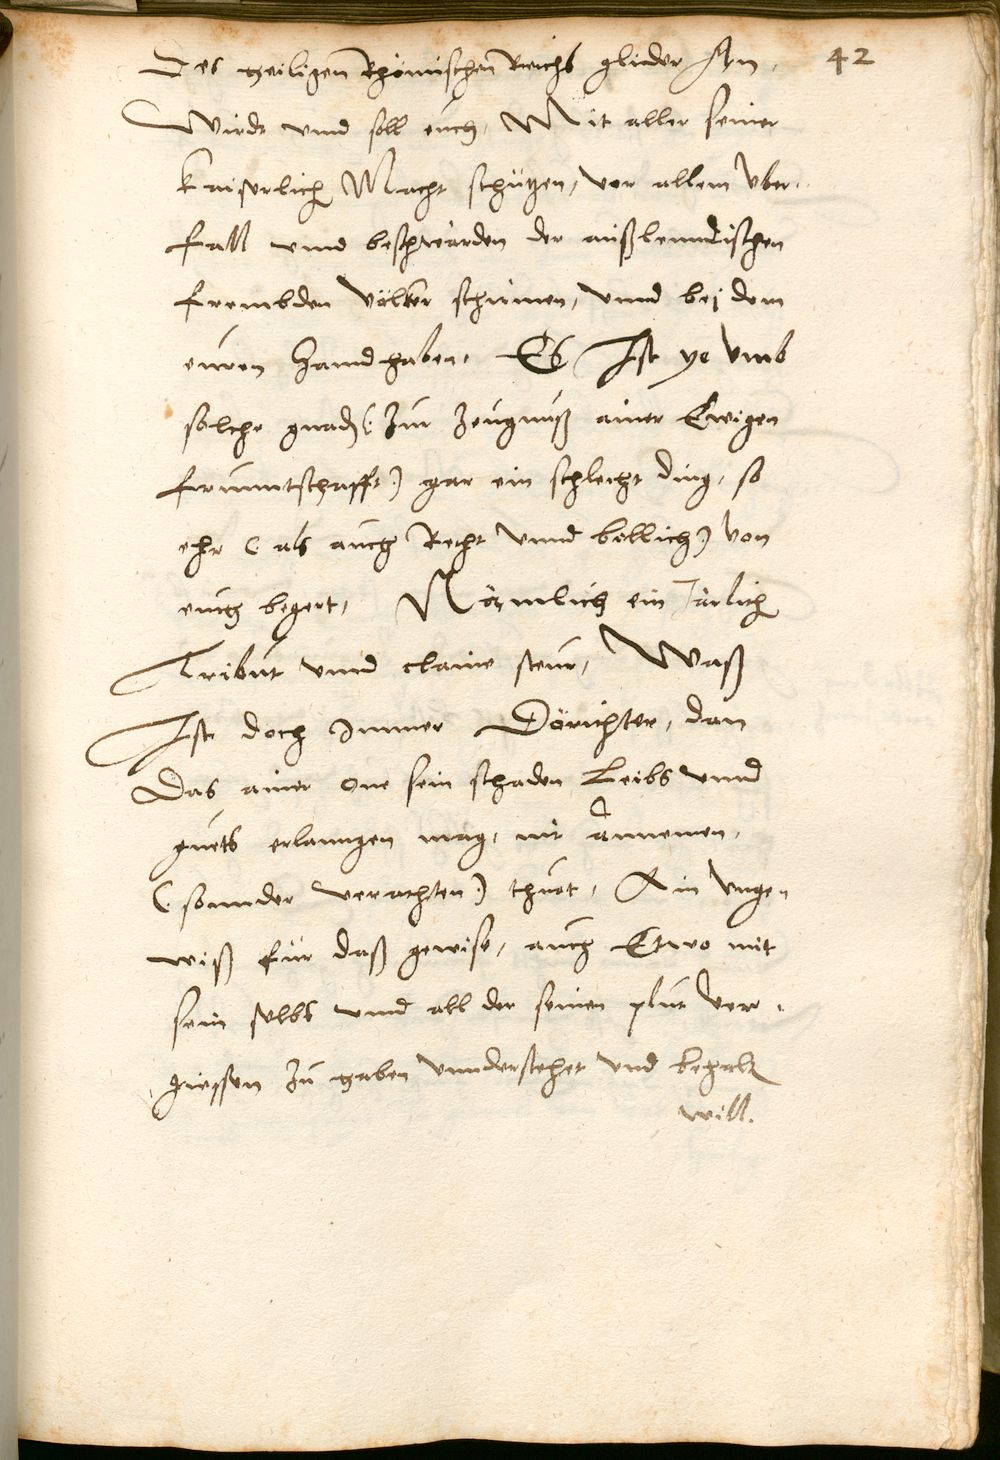 42
Des heiligen Rhömischen Reichs glider Syn,
Wirdt vnnd soll euch, Mit aller seiner
kaiserlich Macht schützen, vor allem vber-
fall vnnd beschwärden der außlenndischen
frembden völker schirmen, vnnd bei dem
euren Hanndhaben. Es Ist ye vmb
solche gnad (: zur zeugnuß ainer Ewigen
freunntschafft :) gar ein schlecht ding, so
ehr (: als auch Recht vnnd billich :) von
euch begert, Nämlich ein Järlich
Tribut vnnd claine steur, Waß
Ist doch Immer Dörichter, dan
Das ainer one sein schaden Leibs vnnd
guets erlanngen mag, nit annemen,
(: sonnder verachten :) thuot, Ain vngen
wiß für daß gewise, auch Etwo mit
sein selbs vnnd all der seinen pluet ver-
giessen zu haben vnnderstehet vnd behalt
will.